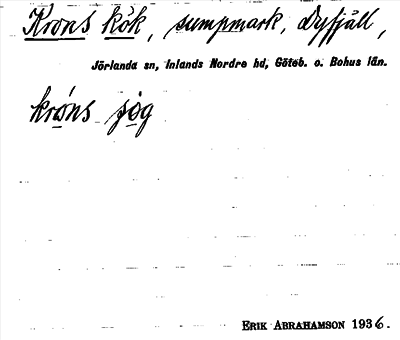 Krons kök, sumpmark, Dyfjäll,
Jörlanda sn, Inlands Nordre hd, Göteb. o. Bohus län.
króns
ERIK ABRAHAMSON 1936.